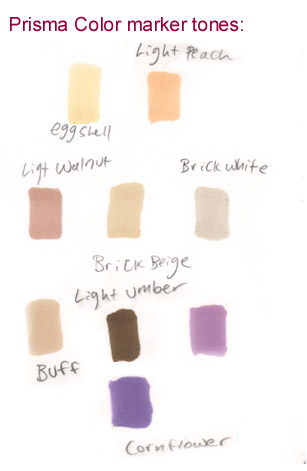 Prisma Color marker tones:
Light Peach
eggshell
Ligt Walnut
Brick White
Brick Beige
Light Umber
Buff
Cornflower